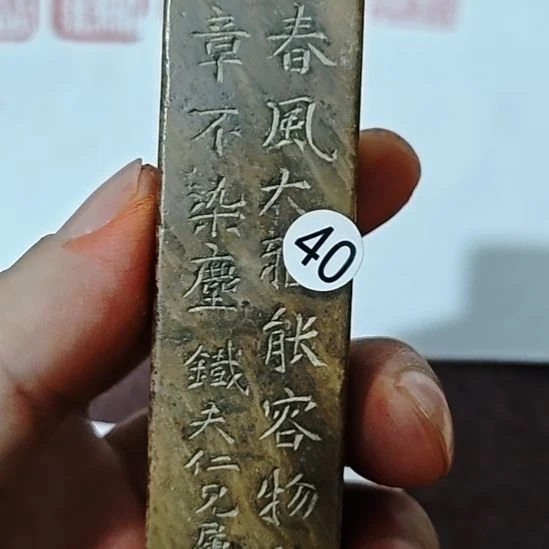 春風大雅能容物
章不染塵 鐵夫仁兄屬
40